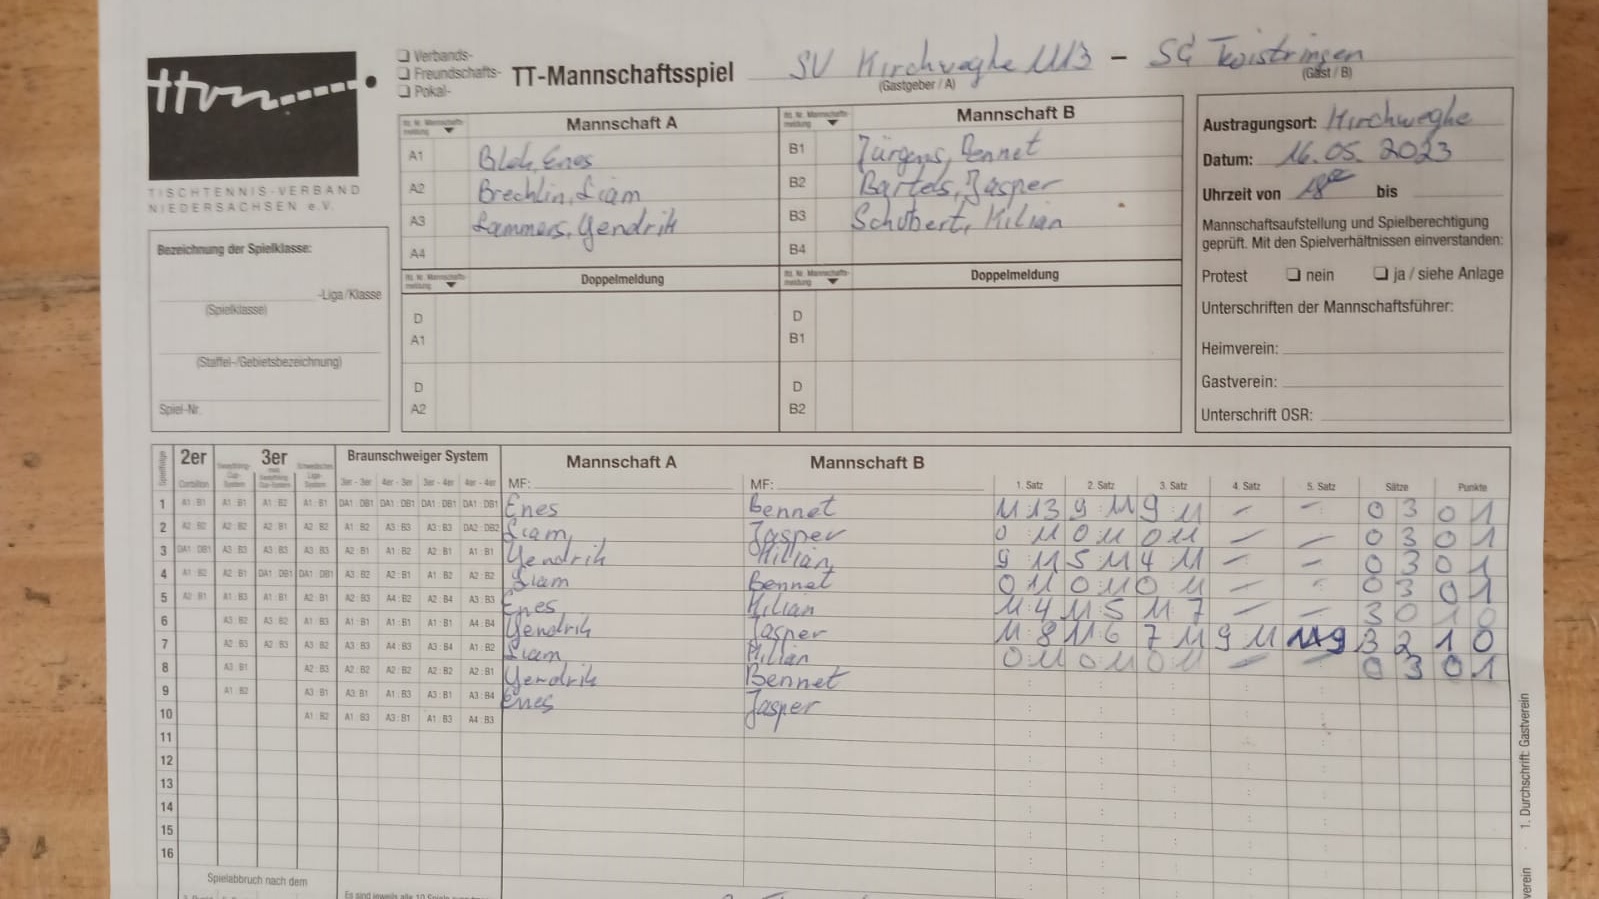 ttvn
TISCHTENNIS-VERBAND
NIEDERSACHSEN e.V.
❏ Verbands-
❏ Freundschafts-
❏ Pokal-
TT-Mannschaftsspiel
SV Kirchweyhe U13 - SG Twistringen
(Gastgeber / A) (Gast / B)
Mannschaft A
A1 Enes
A2 Brechlin, Liam
A3 Lammers, Yendrik
A4
Doppelmeldung
D
A1
D
A2
Mannschaft B
B1 Jürgens, Bennet
B2 Bartels, Jasper
B3 Schubert, Kilian
B4
Doppelmeldung
D
B1
D
B2
Austragungsort: Kirchweyhe
Datum: 16.05.2023
Uhrzeit von 18 bis
Mannschaftsaufstellung und Spielberechtigung
geprüft. Mit den Spielverhältnissen einverstanden:
Protest ❏ nein ❏ ja / siehe Anlage
Unterschriften der Mannschaftsführer:
Heimverein:
Gastverein:
Unterschrift OSR:
Bezeichnung der Spielklasse:
-Liga/Klasse
(Spielklasse)
(Staffel-/Gebietsbezeichnung)
Spiel-Nr.
Spielfolge 2er 3er Braunschweiger System Mannschaft A Mannschaft B
3er - 3er 4er - 3er 3er - 4er 4er - 4er MF: MF: 1. Satz 2. Satz 3. Satz 4. Satz 5. Satz Sätze Punkte
1 A1 : B1 A1 : B1 A1 : B2 A1 : B1 DA1 : DB1 DA1 : DB1 DA1 : DB1 DA1 : DB1 Enes Bennet 11 13 9 : 11 9 11 – – 0 3 0 1
2 A2 : B2 A2 : B2 A2 : B1 A2 : B2 A1 : B2 A3 : B3 A3 : B3 DA2 : DB2 Liam Jasper 0 11 0 11 0 11 – – 0 3 0 1
3 DA1 : DB1 A3 : B3 A3 : B3 A3 : B3 A2 : B1 A1 : B2 A2 : B1 A1 : B1 Yendrik Kilian 9 11 5 11 4 11 – – 0 3 0 1
4 A1 : B2 A2 : B1 DA1 : DB1 DA1 : DB1 A3 : B2 A2 : B1 A1 : B2 A2 : B2 Liam Bennet 0 11 0 11 0 11 – – 0 3 0 1
5 A2 : B1 A1 : B3 A1 : B1 A2 : B1 A2 : B3 A4 : B2 A2 : B4 A3 : B3 Enes Kilian 11 : 4 11 : 5 11 : 7 – – 3 0 1 0
6 A3 : B2 A3 : B2 A1 : B3 A1 : B1 A1 : B1 A1 : B1 A4 : B4 Yendrik Jasper 11 8 11 6 7 11 9 11 11 9 3 2 1 0
7 A2 : B3 A2 : B3 A3 : B2 A3 : B3 A4 : B3 A3 : B4 A1 : B2 Liam Kilian 0 11 0 11 0 11 – – 0 3 0 1
8 A3 : B1 A2 : B3 A2 : B2 A2 : B2 A2 : B2 A2 : B1 Yendrik Bennet
9 A1 : B2 A3 : B1 A3 : B1 A1 : B3 A3 : B1 A3 : B4 Enes Jasper
10 A1 : B2 A1 : B3 A3 : B1 A1 : B3 A4 : B3
11
12
13
14
15
16
Spielabbruch nach dem
1. Durchschrift: Gastverein